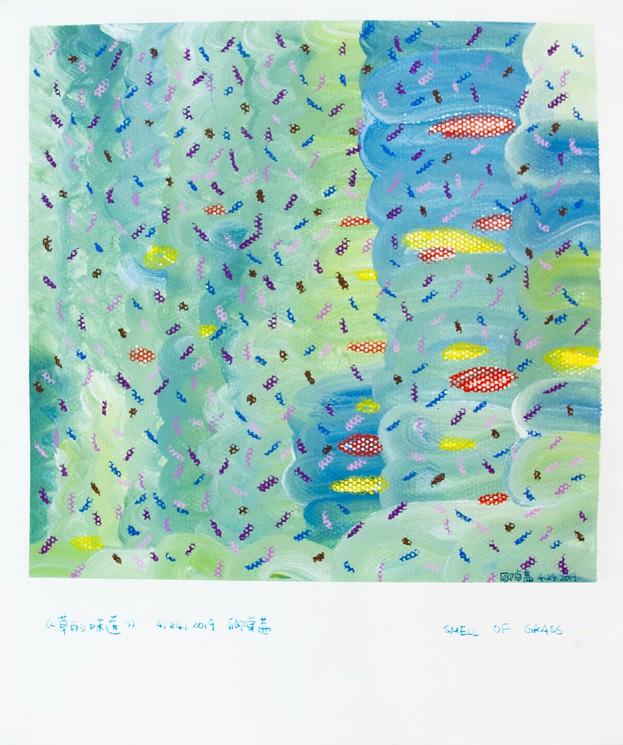 4.24.2019
《草的味道》 4.24.2019
SMELL OF GRASS